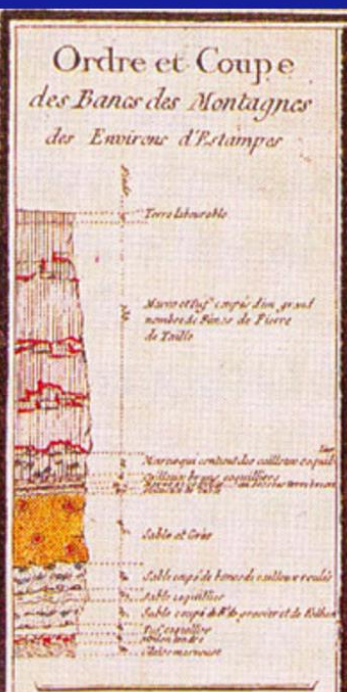 Ordre et Coupe
des Bancs des Montagnes
des Environs d'Estampes
Terre labourable
Marne et tuf coupés d'un grand
nombre de Bancs de Pierre
de Taille
Marne qui contient des cailloux coquil
Cailloux bruns coquilliers
Sable et Grès
Sable coupé de bancs de cailloux roulés
Sable coquillier
Sable coupé de de gravier et de
Tuf coquillier
Glaise marneuse